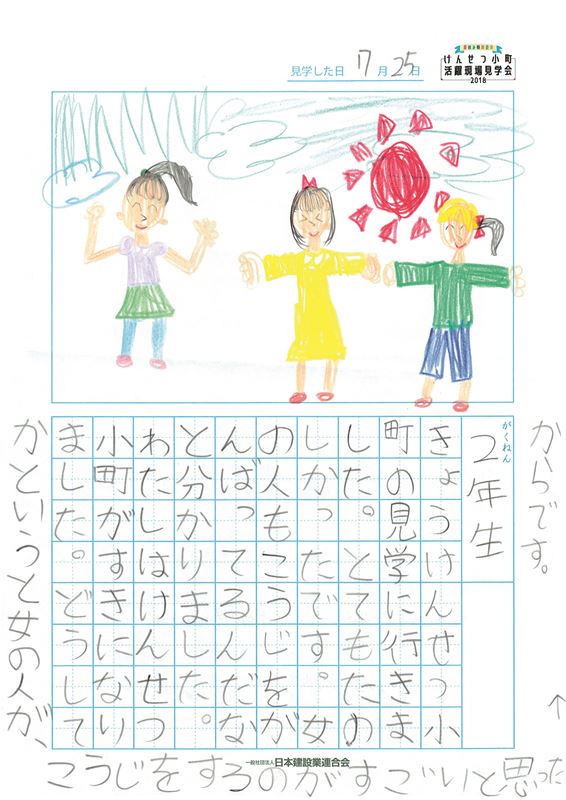 けんせつ小町
活躍現場見学会
2018
見学した日 7月25日
がくねん
2年生
きょうけんせつ小
町の見学に行きま
した。とてもたの
しかったです。女
の人もこうじをが
んばってるんだな
と分かりました。
わたしはけんせつ
小町がすきになり
ました。どうして
かというと女の人が、
こうじをするのがすごいと思った
↑
からです。
一般社団法人 日本建設業連合会